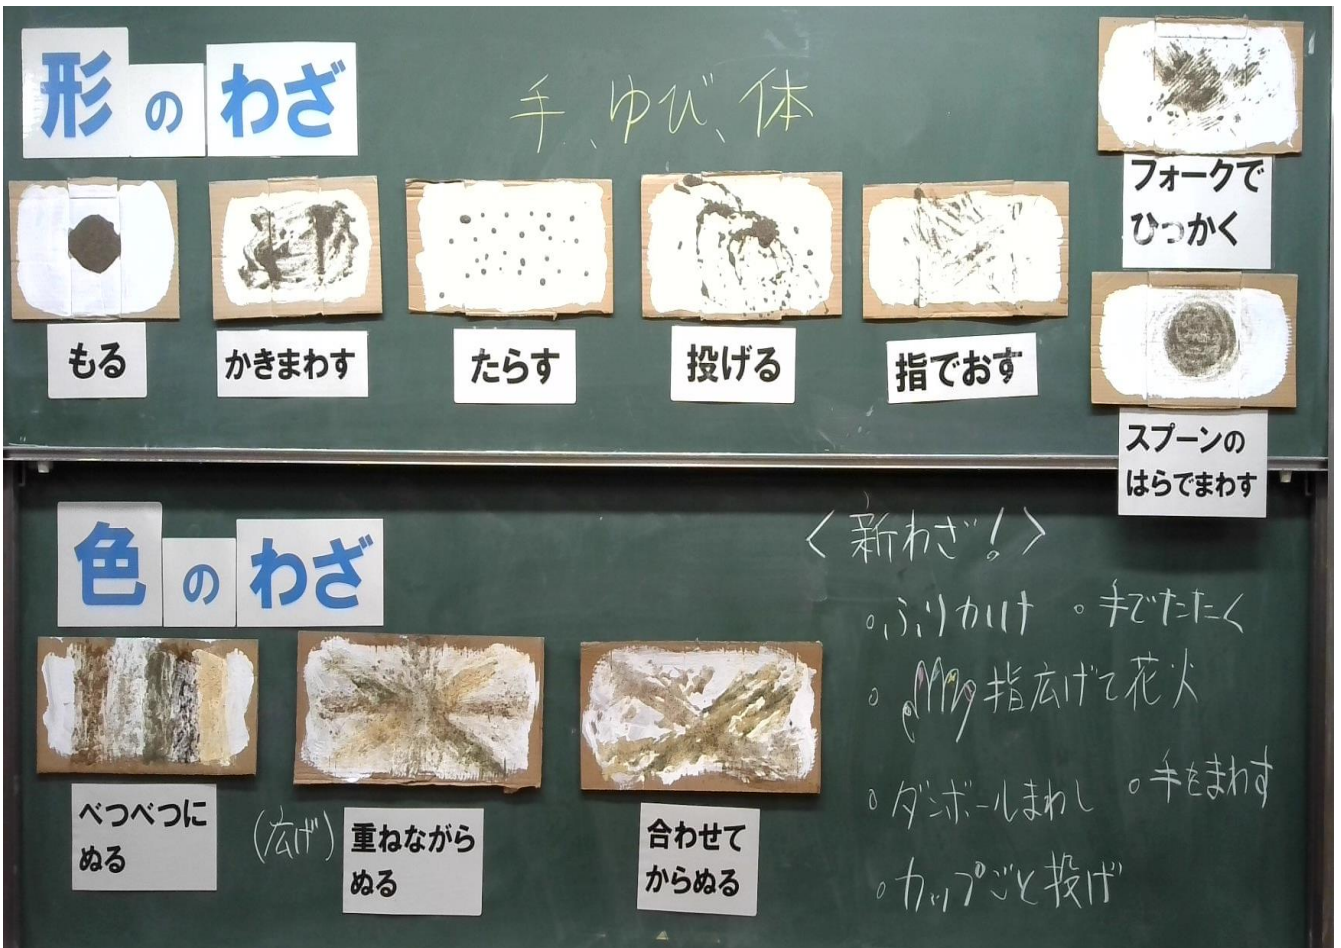 形のわざ
手、ゆび、体
もる
かきまわす
たらす
投げる
指でおす
フォークで
ひっかく
スプーンの
はらでまわす
色のわざ
べつべつに
ぬる
(広げ)
重ねながら
ぬる
合わせて
からぬる
<新わざ!>
・ふりかけ
・手でたたく
・指広げて花火
・ダンボールまわし
・手をまわす
・カップごと投げ